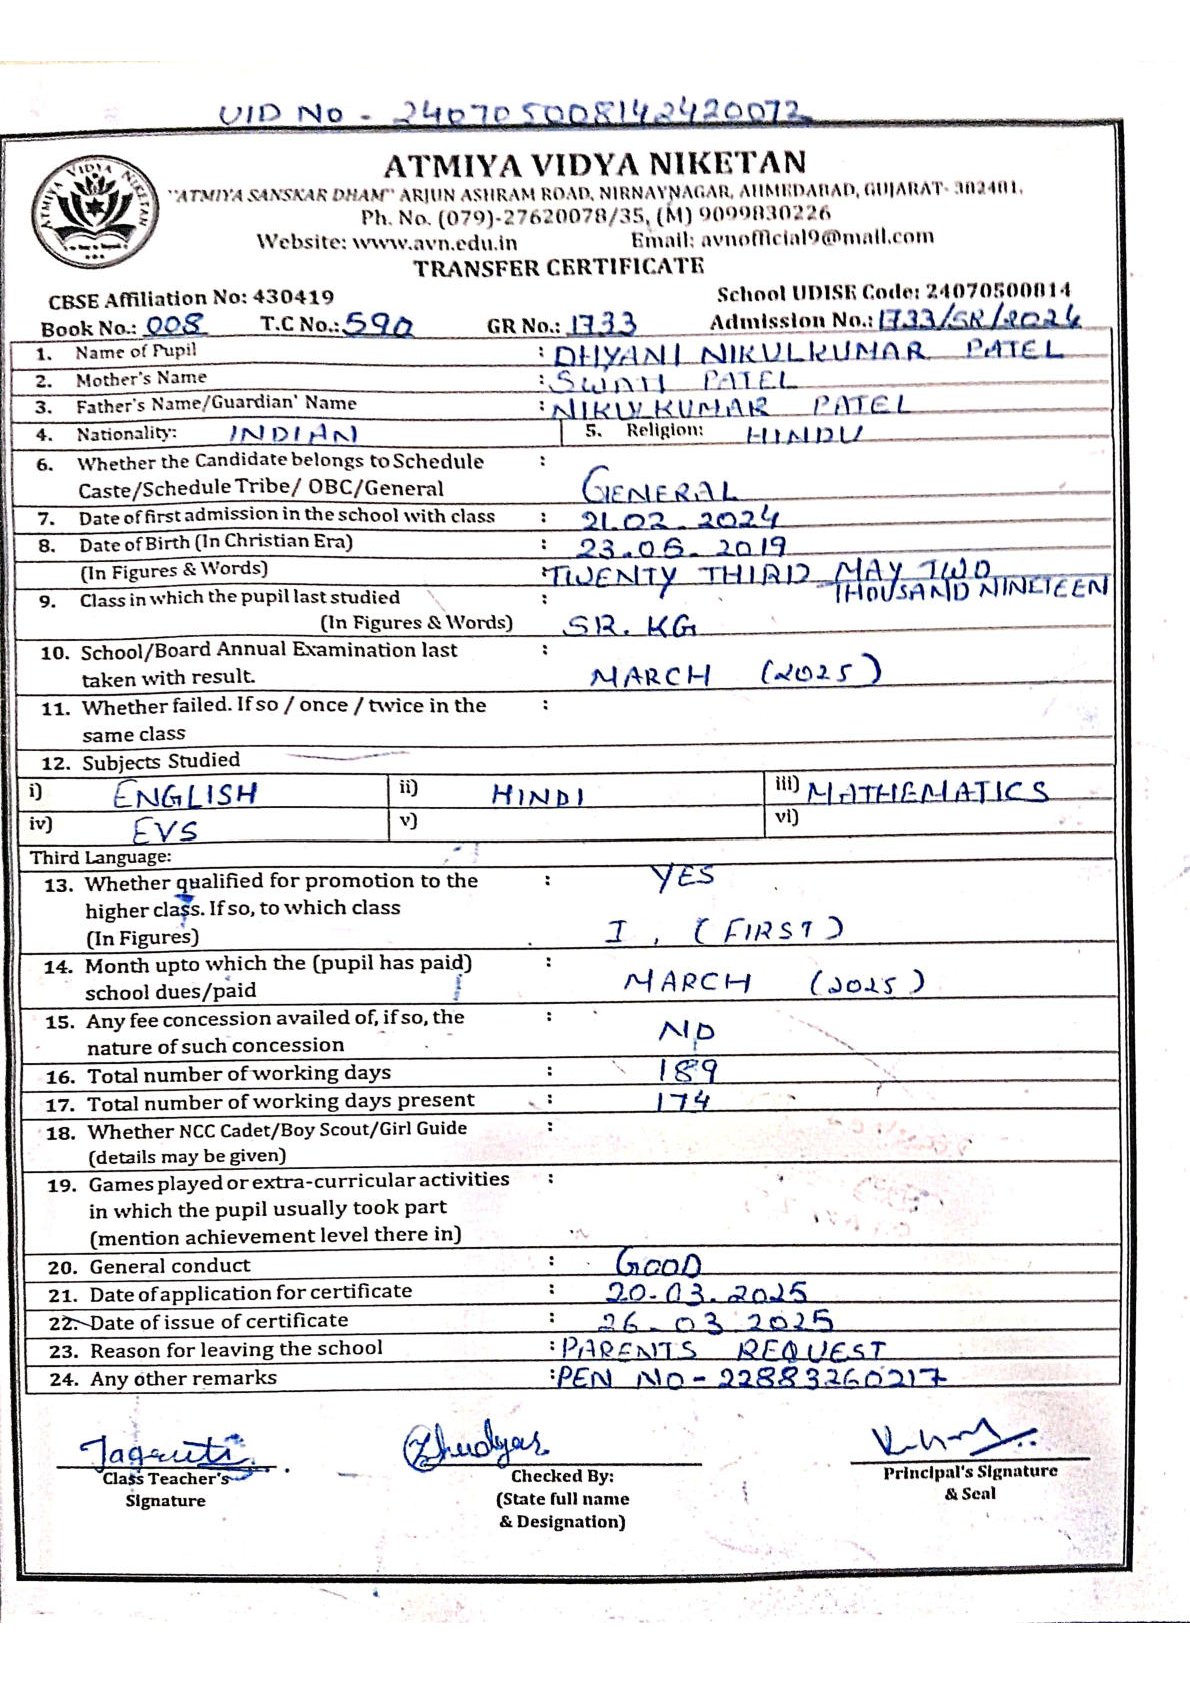 UID No - 240705008142420072
ATMIYA VIDYA NIKETAN
"ATMIYA SANSKAR DHAM" ARJUN ASHRAM ROAD, NIRNAYNAGAR, AHMEDABAD, GUJARAT- 382481.
Ph. No. (079)-27620078/35, (M) 9099830226
Website: www.avn.edu.in Email: avnofficial9@mail.com
TRANSFER CERTIFICATE
CBSE Affiliation No: 430419 School UDISE Code: 24070500814
Book No.: 008 T.C No.: 590 GR No.: 1733 Admission No.: 1733/SR/2024
1. Name of Pupil : DHYANI NIKULKUMAR PATEL
2. Mother's Name : SWATI PATEL
3. Father's Name/Guardian' Name : NIKULKUMAR PATEL
4. Nationality: INDIAN 5. Religion: HINDU
6. Whether the Candidate belongs to Schedule :
Caste/Schedule Tribe/ OBC/General GENERAL
7. Date of first admission in the school with class : 21.02.2024
8. Date of Birth (In Christian Era) : 23.05.2019
(In Figures & Words) : TWENTY THIRD MAY TWO
THOUSAND NINETEEN
9. Class in which the pupil last studied :
(In Figures & Words) SR. KG
10. School/Board Annual Examination last :
taken with result. MARCH (2025)
11. Whether failed. If so / once / twice in the :
same class
12. Subjects Studied
i) ENGLISH ii) HINDI iii) MATHEMATICS
iv) EVS v) vi)
Third Language:
13. Whether qualified for promotion to the : YES
higher class. If so, to which class
(In Figures) I, (FIRST)
14. Month upto which the (pupil has paid) :
school dues/paid MARCH (2025)
15. Any fee concession availed of, if so, the :
nature of such concession NO
16. Total number of working days : 189
17. Total number of working days present : 174
18. Whether NCC Cadet/Boy Scout/Girl Guide :
(details may be given)
19. Games played or extra-curricular activities :
in which the pupil usually took part
(mention achievement level there in)
20. General conduct : GOOD
21. Date of application for certificate : 20-03.2025
22. Date of issue of certificate : 26-03 2025
23. Reason for leaving the school : PARENTS REQUEST
24. Any other remarks : PEN NO- 22883260217
Jagruti
Class Teacher's Checked By: Principal's Signature
Signature (State full name & Seal
& Designation)